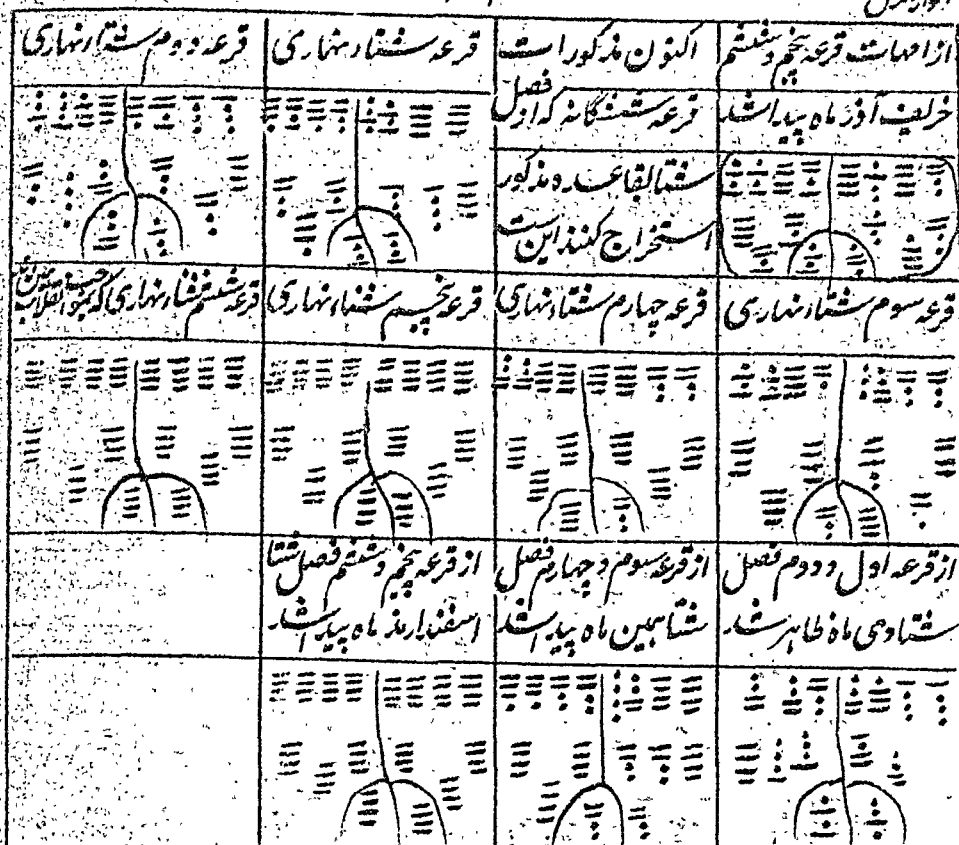 از امهات قرعه پنجم و ششم
خریف آذر ماه پیداشد
اکنون مذکور است
قرعه ششگانه که اول فصل
شتا بقاعده مذکور
استخراج کنند این است
قرعه شتاء نهاری
قرعه دوم شتاء نهاری
قرعه سوم شتاء نهاری
قرعه چهارم شتاء نهاری
قرعه پنجم شتاء نهاری
قرعه ششم شتاء نهاری که
از قرعه اول و دوم فصل
شتا دی ماه ظاهر شد
از قرعه سوم و چهارم فصل
شتا بهمن ماه پیداشد
از قرعه پنجم و ششم فصل شتا
اسفندارمذ ماه پیداشد